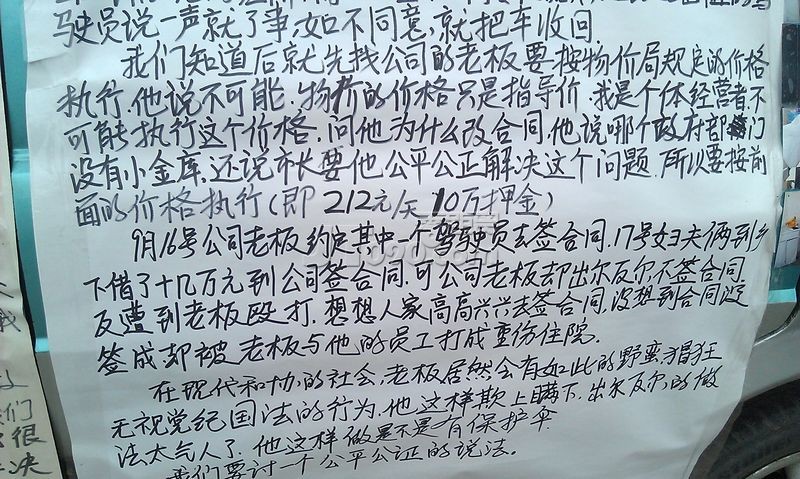 驾驶员说一声就了事,如不同意,就把车收回
我们知道后就先找公司的老板要按物价局规定的价格
执行.他说不可能.物价的价格只是指导价.我是个体经营者.不
可能执行这个价格.问他为什么改合同.他说哪个政府部门
没有小金库.还说市长要他公平公正解决这个问题.所以要按前
面的价格执行(即212元/天 10万押金)
9月16号公司老板约定其中一个驾驶员去签合同.17号妇夫俩到乡
下借了十几万元到公司签合同.可公司老板却出尔反尔.不签合同
反遭到老板殴打.想想人家高高兴兴去签合同.没想到合同没
签成却被老板与他的员工打成重伤住院.
在现代和协的社会.老板居然会有如此的野蛮猖狂
无视党纪国法的行为.他这样欺上瞒下.出尔反尔的做
法太气人了.他这样做是不是有保护伞
我们要讨一个公平公证的说法.
我
们
很
决